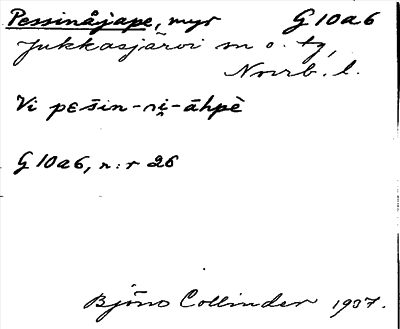 Pessinåjape, myr G 10a6
Jukkasjärvi sn o. tg,
Norrb. l.
Vi pεšin-ni̮-āhpè
G 10a6, n:r 26
Björn Collinder 1937.